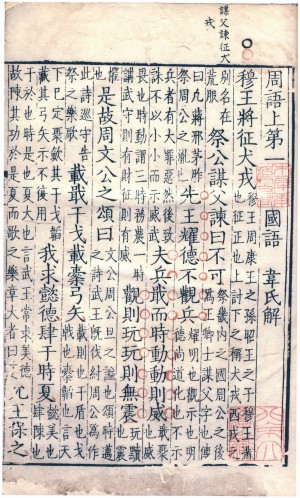 謀父諫征犬戎
周語上第一 國語 韋氏解
穆王將征犬戎 穆王周康王之孫昭王之子穆王滿也征正也上討下之稱犬戎西戎之
別名在荒服 祭公謀父諫曰不可 祭畿內之國周公之後也為王卿士謀父字也傳
曰凡蔣邢茅胙祭周公之胤也 先王耀德不觀兵 耀明也觀示也明德尚道化也不示
兵者有大罪惡然後致誅不以小小而示威武 夫兵戢而時動動則威 戢聚也威
畏也時動謂三時務農一時講武守則有財征則有威 觀則玩玩則無震 玩黷也震
懼也 是故周文公之頌曰 文公周公旦之謚也頌時邁之詩武王既伐紂周公為作
此詩巡守告祭之樂歌 載戢干戈載櫜弓矢 載則也干楯也戈戟也櫜韜也言天
下已定聚斂其干戈韜藏其弓矢示不復用 我求懿德肆于時夏 懿美也肆陳也
于於也時是也夏大也言武王常求美德故陳其功於是夏而歌之樂章大者曰夏 允王保之